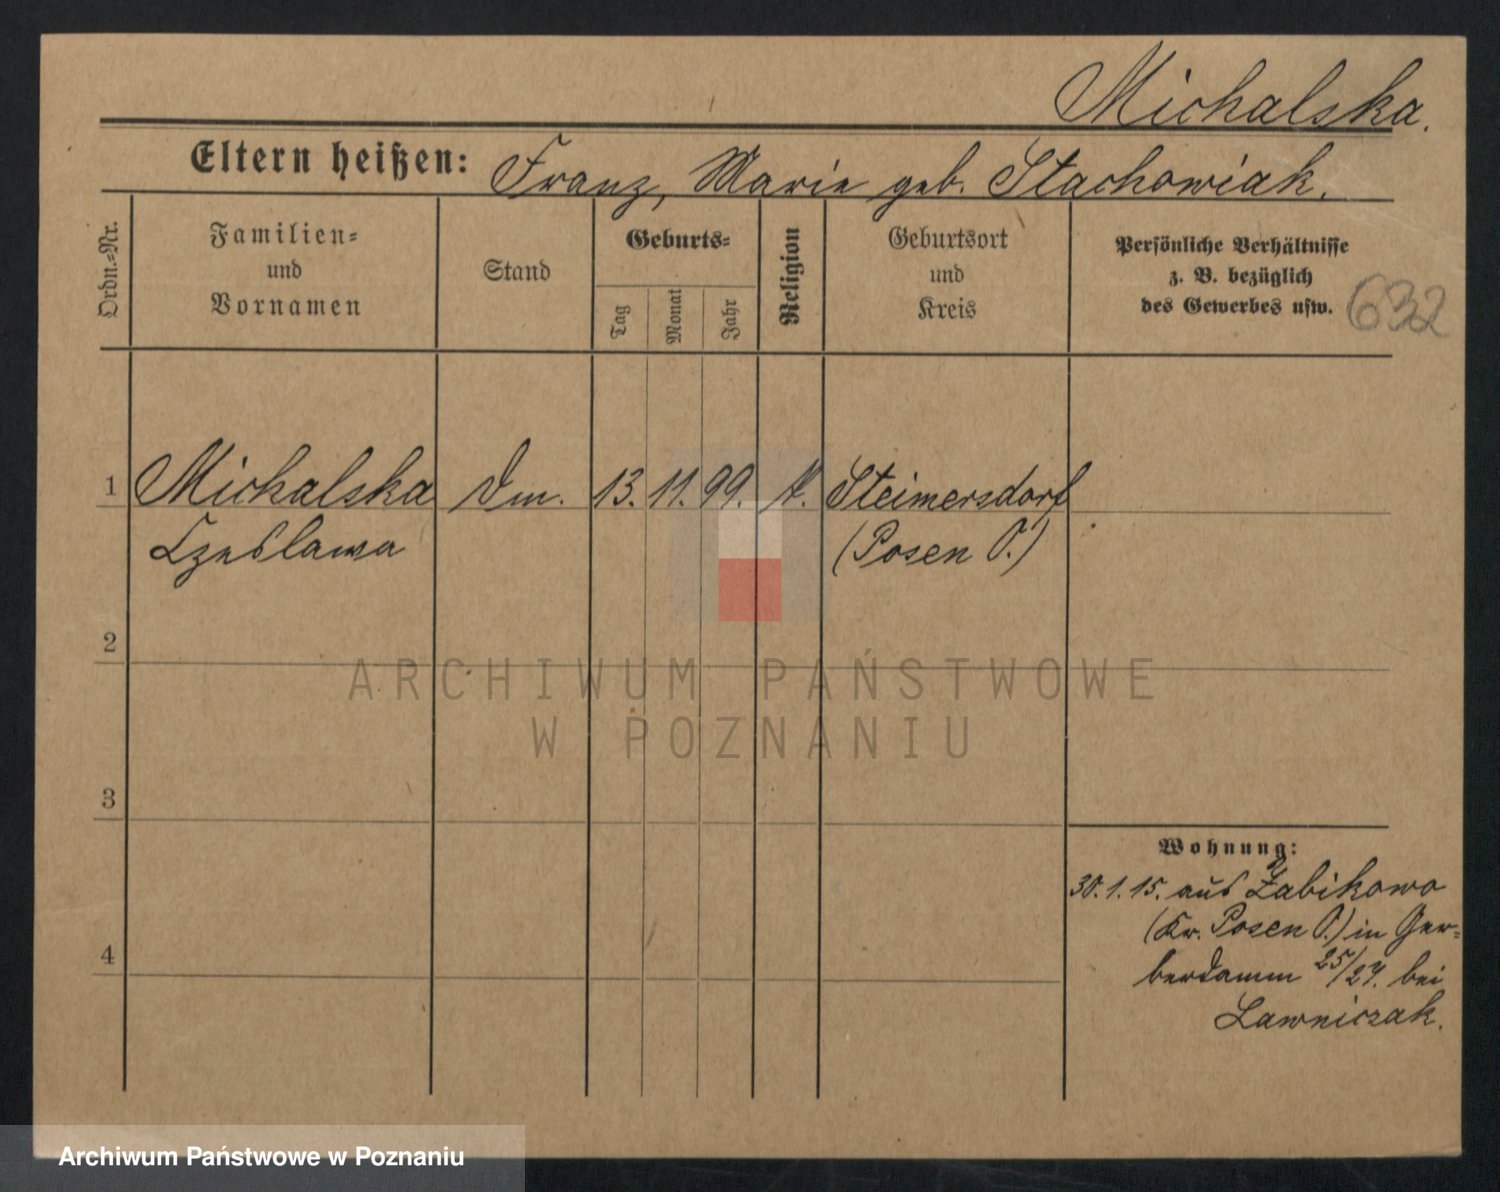 Michalska.
Eltern heißen: Franz, Marie geb. Stachowiak.
Ordn.-Nr.
Familien-
und
Vornamen
Stand
Geburts-
Tag
Monat
Jahr
Religion
Geburtsort
und
Kreis
Persönliche Verhältnisse
z. B. bezüglich
des Gewerbes usw.
632
1 Michalska Dm. 13. 11. 99. K. Steimersdorf
Czeslawa (Posen O.)
2
3
4
Wohnung:
30.1.15. aus Zabikowo
(Kr. Posen O.) in Ger-
berdamm 25/27. bei
Lawniczak.
ARCHIWUM PAŃSTWOWE
W POZNANIU
Archiwum Państwowe w Poznaniu